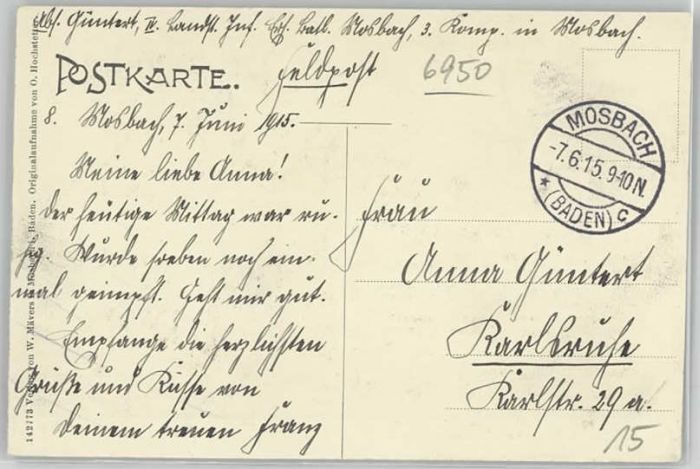 Abs. Güntert, IV. Landst. Inf. Ers. Batl. Mosbach, 3. Komp. in Mosbach.
POSTKARTE.
Feldpost
6950
8. Mosbach, 7. Juni 1915.
Meine liebe Anna!
Der heutige Mittag war ru-
hig. Wurde soeben noch ein-
mal geimpft. Geht mir gut.
Empfange die herzlichsten
Grüße und Küsse von
Deinem treuen Franz
Frau
Anna Güntert
Karlsruhe
Karlstr. 29 a.
15
MOSBACH
-7.6.15. 9-10 N.
* (BADEN) c
142773 Verlag von W. Mävers Mosbach, Baden. Originalaufnahme von O. Hochstetter